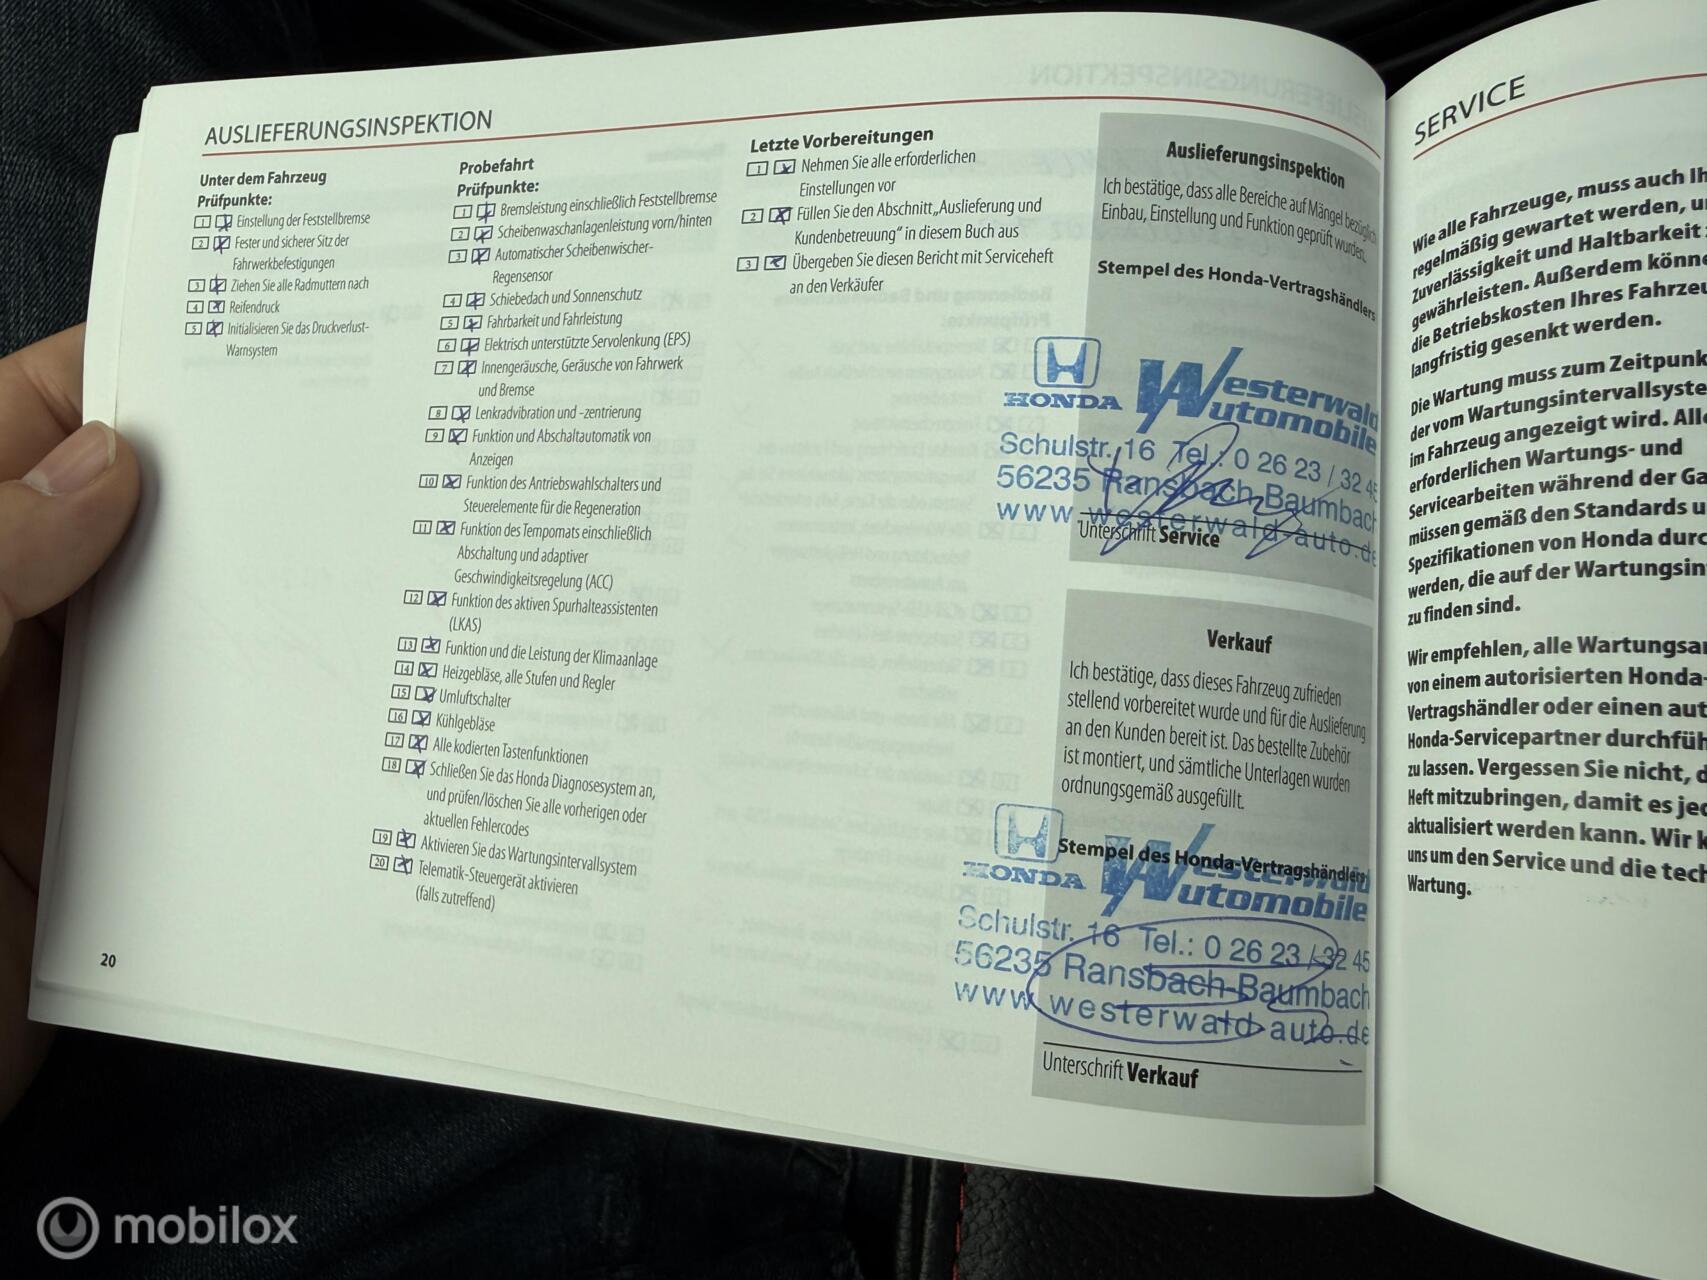 AUSLIEFERUNGSINSPEKTION
Unter dem Fahrzeug
Prüfpunkte:
1 Einstellung der Feststellbremse
2 Fester und sicherer Sitz der
Fahrwerkbefestigungen
3 Ziehen Sie alle Radmuttern nach
4 Reifendruck
5 Initialisieren Sie das Druckverlust-
Warnsystem
Probefahrt
Prüfpunkte:
1 Bremsleistung einschließlich Feststellbremse
2 Scheibenwaschanlagenleistung vorn/hinten
3 Automatischer Scheibenwischer-
Regensensor
4 Schiebedach und Sonnenschutz
5 Fahrbarkeit und Fahrleistung
6 Elektrisch unterstützte Servolenkung (EPS)
7 Innengeräusche, Geräusche von Fahrwerk
und Bremse
8 Lenkradvibration und -zentrierung
9 Funktion und Abschaltautomatik von
Anzeigen
10 Funktion des Antriebswahlschalters und
Steuerelemente für die Regeneration
11 Funktion des Tempomats einschließlich
Abschaltung und adaptiver
Geschwindigkeitsregelung (ACC)
12 Funktion des aktiven Spurhalteassistenten
(LKAS)
13 Funktion und die Leistung der Klimaanlage
14 Heizgebläse, alle Stufen und Regler
15 Umluftschalter
16 Kühlgebläse
17 Alle kodierten Tastenfunktionen
18 Schließen Sie das Honda Diagnosesystem an,
und prüfen/löschen Sie alle vorherigen oder
aktuellen Fehlercodes
19 Aktivieren Sie das Wartungsintervallsystem
20 Telematik-Steuergerät aktivieren
(falls zutreffend)
Letzte Vorbereitungen
1 Nehmen Sie alle erforderlichen
Einstellungen vor
2 Füllen Sie den Abschnitt „Auslieferung und
Kundenbetreuung“ in diesem Buch aus
3 Übergeben Sie diesen Bericht mit Serviceheft
an den Verkäufer
Auslieferungsinspektion
Ich bestätige, dass alle Bereiche auf Mängel bezüglich
Einbau, Einstellung und Funktion geprüft wurden.
Stempel des Honda-Vertragshändlers
HONDA Westerwald
Automobile
Schulstr. 16 Tel.: 0 26 23 / 32 45
56235 Ransbach-Baumbach
www.westerwald-auto.de
Unterschrift Service
Verkauf
Ich bestätige, dass dieses Fahrzeug zufrieden
stellend vorbereitet wurde und für die Auslieferung
an den Kunden bereit ist. Das bestellte Zubehör
ist montiert, und sämtliche Unterlagen wurden
ordnungsgemäß ausgefüllt.
Stempel des Honda-Vertragshändlers
HONDA Westerwald
Automobile
Schulstr. 16 Tel.: 0 26 23 / 32 45
56235 Ransbach-Baumbach
www.westerwald-auto.de
Unterschrift Verkauf
20
SERVICE
Wie alle Fahrzeuge, muss auch Ih
regelmäßig gewartet werden, u
Zuverlässigkeit und Haltbarkeit
gewährleisten. Außerdem könne
die Betriebskosten Ihres Fahrzeu
langfristig gesenkt werden.
Die Wartung muss zum Zeitpunk
der vom Wartungsintervallsyste
im Fahrzeug angezeigt wird. Alle
erforderlichen Wartungs- und
Servicearbeiten während der Ga
müssen gemäß den Standards u
Spezifikationen von Honda durc
werden, die auf der Wartungsin
zu finden sind.
Wir empfehlen, alle Wartungsar
von einem autorisierten Honda-
Vertragshändler oder einen aut
Honda-Servicepartner durchfüh
zu lassen. Vergessen Sie nicht, d
Heft mitzubringen, damit es jed
aktualisiert werden kann. Wir k
uns um den Service und die tech
Wartung.
mobilox